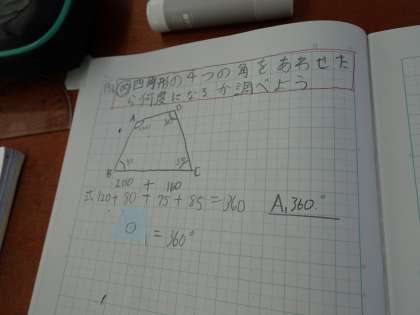 四角形の4つの角をあわせた
ら何度になるか調べよう
A
D
B
C
200 + 160
式120+80+75+85=360
A,360°
0
=360°